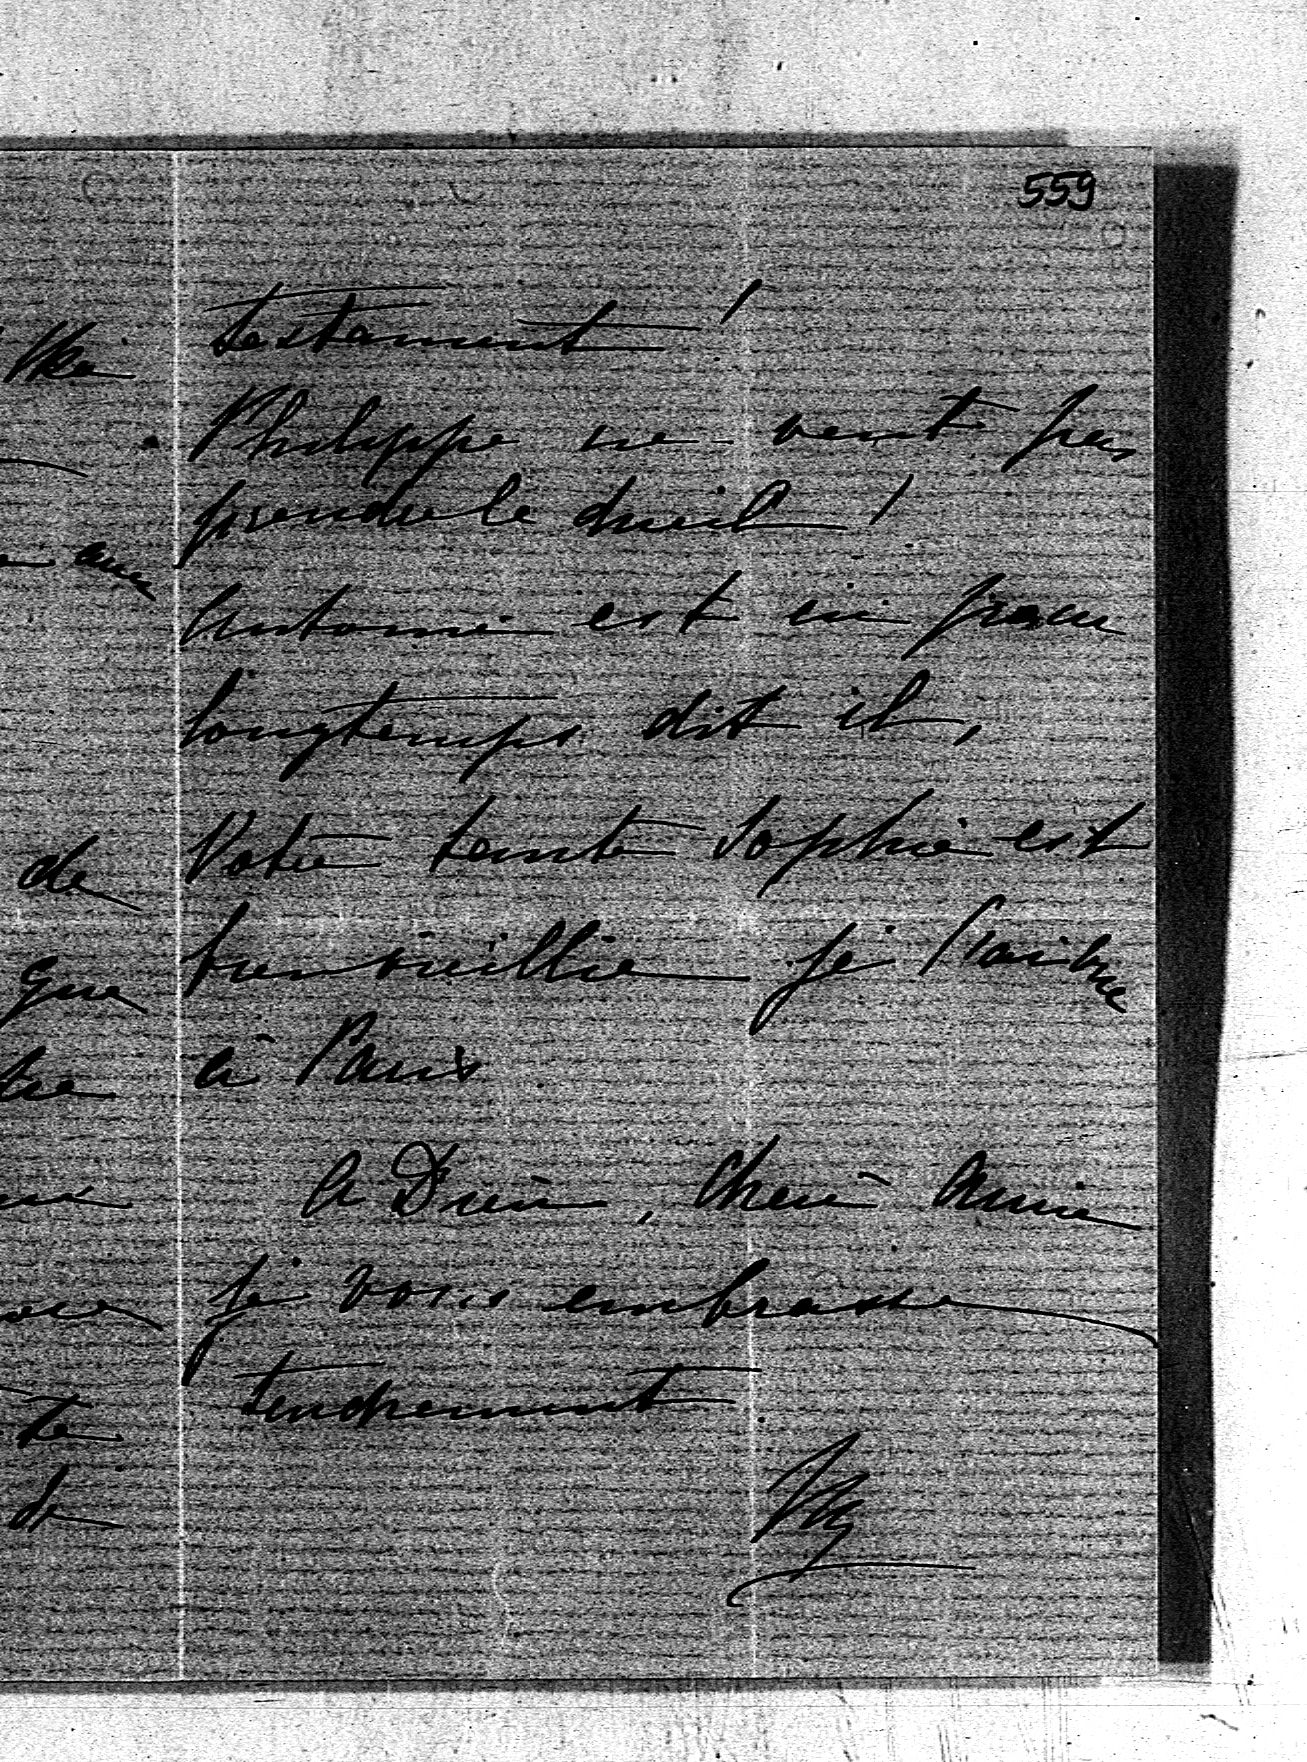 559
testament !
Philippe ne veut pas
prendre le deuil !
Antoine est ici pour
longtemps dit il,
Votre tante Sophie est
bien vieillie je
à Paris
A Dieu, Chère Amie
je vous embrasse
tendrement.
de
que
te
de